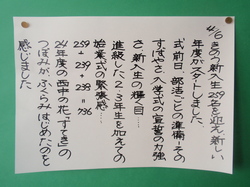 4/6 きのう新入生259名を迎え新しい
年度がスタートしました。
式前日、部活ごとの準備-その
すばやさ、入学式の宣誓の力強
さ、新入生の輝く目…
進級した2・3年生を加えての
始業式の緊張感…
259 + 239 + 238 = 736
24年度の西中の花(すてき)の
つぼみが、ふくらみはじめたのを
感じました